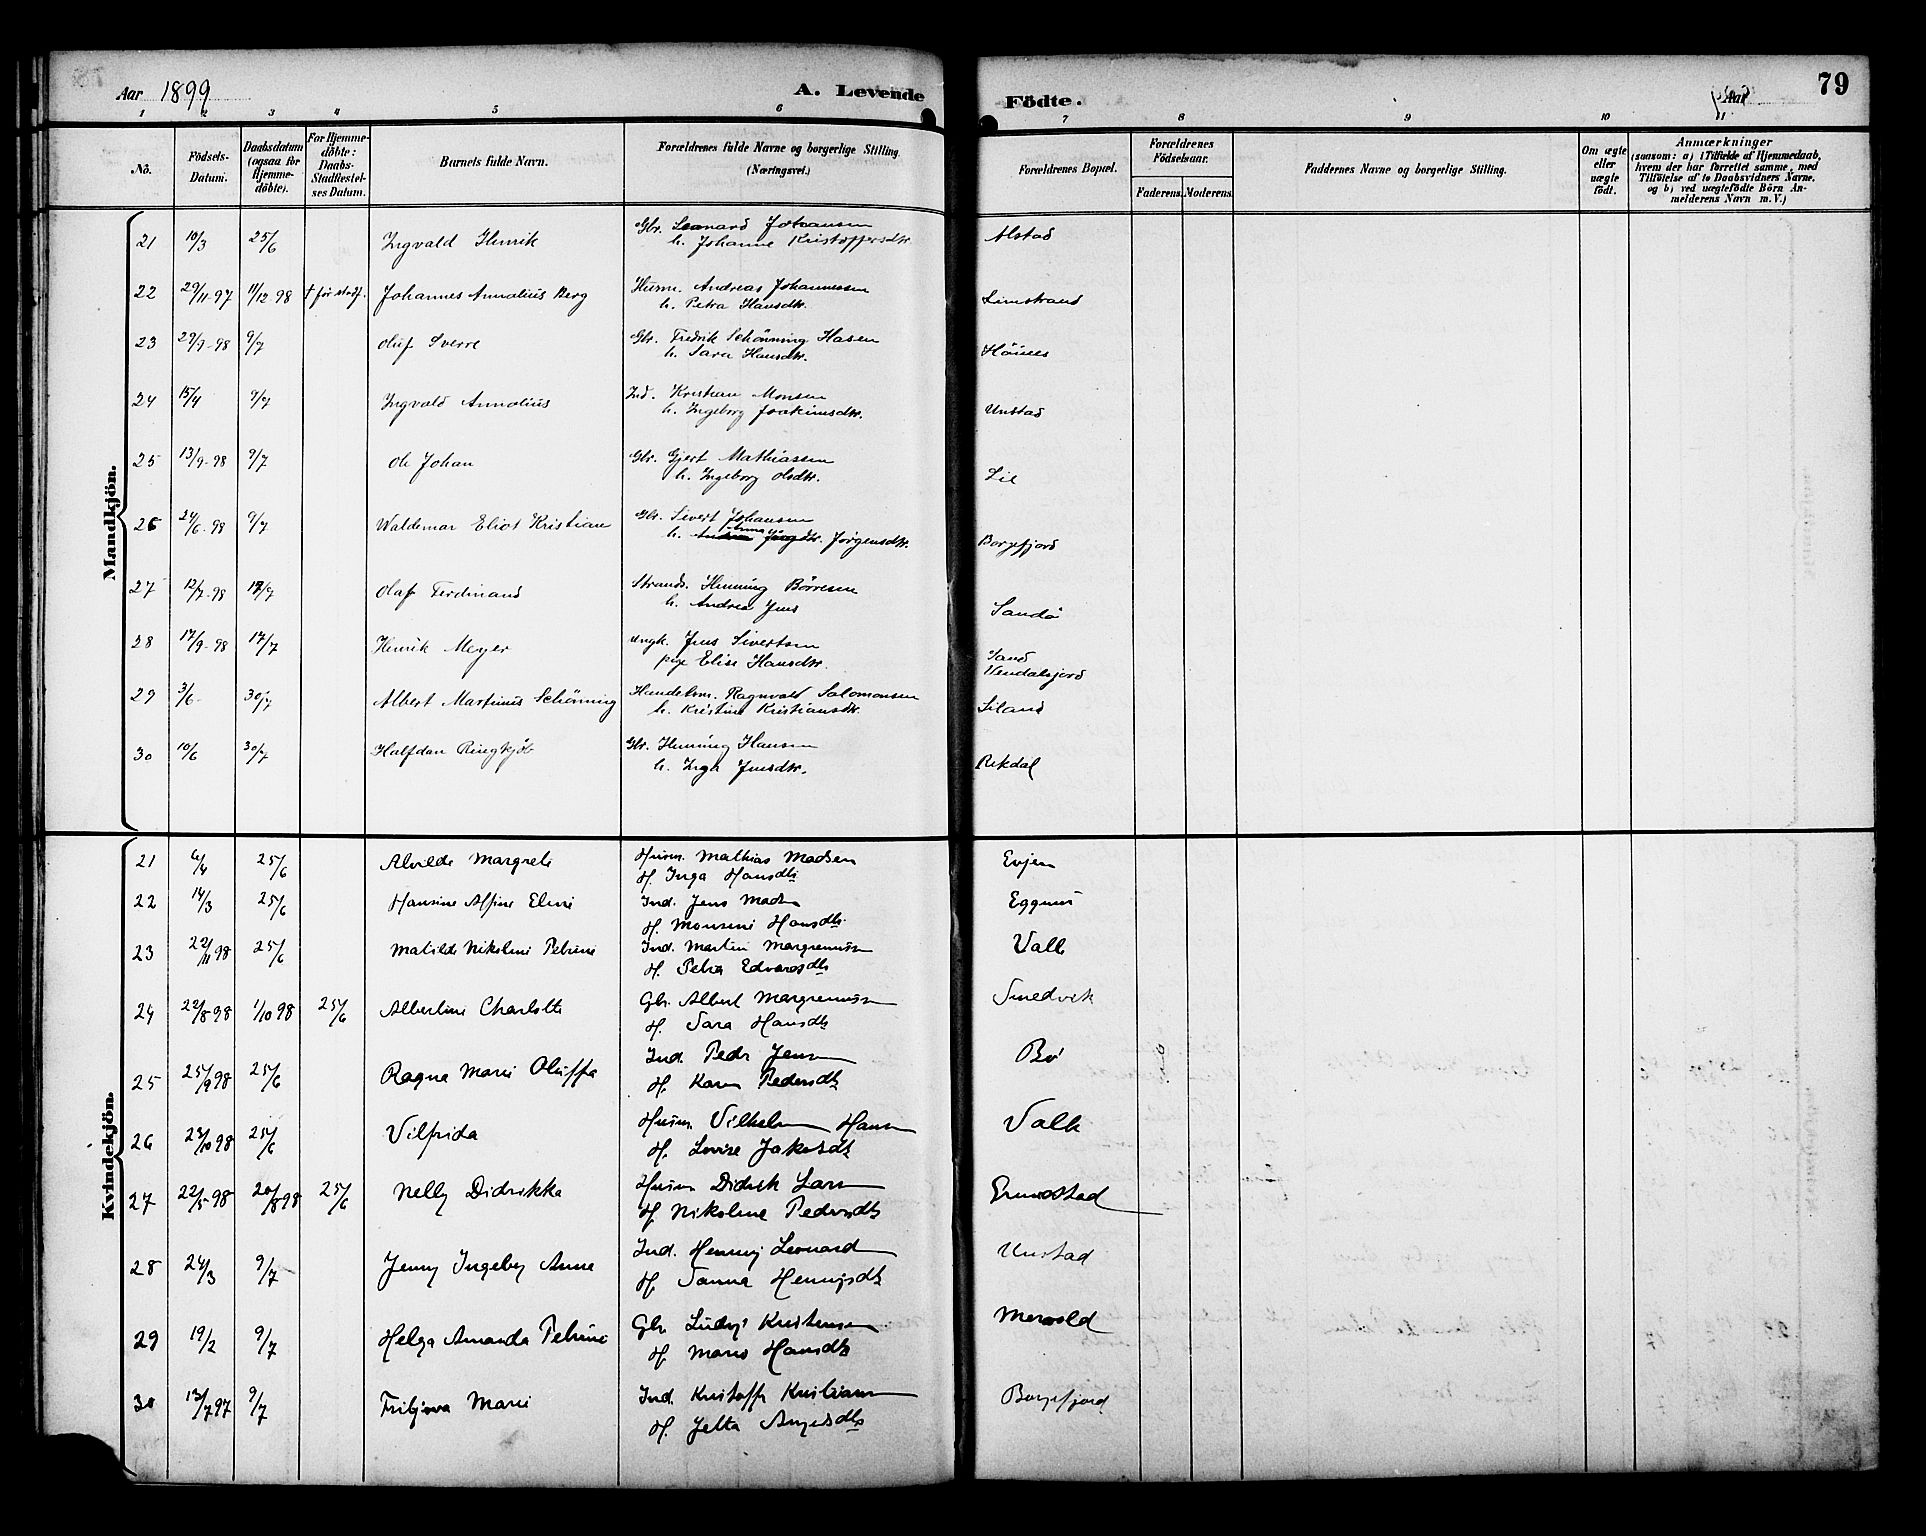 Aar 1899
A. Levende
Födte.
Aar
79
1 2 3 4 5 6 7 8 9 10 11
No.
Födsels-Datum.
Daabsdatum (ogsaa for Hjemmedöbte).
For Hjemmedöbte: Daabs-Stadfestelses Datum.
Barnets fulde Navn.
Forældrenes fulde Navne og borgerlige Stilling. (Næringsvei.)
Forældrenes Bopæl.
Forældrenes Födselsaar.
Faderens. Moderens.
Faddernes Navne og borgerlige Stilling.
Om ægte eller uægte födt.
Anmærkninger
(saasom: a) i Tilfælde af Hjemmedaab, hvem der har forrettet samme, med Tilföielse af to Daabsvidners Navne, og b) ved uægtefödte Börn Anmelderens Navn m. V.)
Mandkjön.
21 10/3 25/6 Ingvald Henrik Gbr. Leonard Johansen Alstad
h. Johanne Kristoffersdtr.
22 29/11-97 11/12 98 † för stadf. Johannes Annolius Berg Husm. Andreas Johannessen Limstrand
h. Petra Hansdtr.
23 29/9-98 9/7 Oluf Sverre Gbr. Fredrik Schönning Hasen
h. Sara Hansdtr.
24 15/4 9/7 Ingvald Annolius Ind. Kristian Monsen Unstad
h. Ingeborg Joakimsdtr.
25 13/9-98 9/7 Ole Johan Gbr. Gjert Mathiassen Lie
h. Ingeborg Olsdtr.
26 24/6-98 9/7 Waldemar Eliot Kristian Gbr. Sivert Johansen Borgefjord
h. Anna Jörgensdtr.
27 12/7-98 17/7 Olaf Ferdinand Strands. Henning Börresen Sandö
h. Andrea Jens
28 17/9-98 17/7 Henrik Meyer Ungk. Jens Sivertsen Sand
pige Elise Hansdtr. Vendalsjord
29 3/6 30/7 Albert Martinus Schönning Handelsm. Ragnvald Salomonsen Liland
h. Kristine Kristiansdtr.
30 10/6 30/7 Halfdan Ringkjöb Gbr. Henning Hansen Rekdal
h. Inga Jensdtr.
Kvindekjön.
21 6/4 25/6 Alvilde Margrete Husm. Mathias Madsen Evjen
H. Inga Hansdtr
22 14/3 25/6 Hansine Alfine Eline Ind. Jens Madsen Eggum
H. Monsine Hansdtr.
23 22/11 98 25/6 Matilde Nikoline Petrine Ind. Martin Margremussen Valle
H. Petra Edvardsdtr
24 22/8-98 1/10 98 25/6 Albertine Charlotte Gbr. Albert Margremussen Smedvik
H. Sara Hansdtr
25 25/9 98 25/6 Ragna Marie Oluffa Ind. Peder Jensen Bö
H. Karen Pedersdtr
26 23/10 98 25/6 Vilfrida Husm. Vilhelm Hansen Valle
H. Lovise Jakobsdtr
27 22/5-98 20/8 98 25/6 Nelly Didrikka Husm Didrik Larsen
H. Nikoline Pedersdtr
28 24/3 9/7 Jenny Ingeborg Anna Ind. Henning Leonardsen Unstad
H. Sanna Henningsdtr
29 19/2 9/7 Helga Amanda Petrine Gbr. Ludvig Kristensen Mervold
H. Maren Hansdtr
30 13/7 97 9/7 Fritjova Marie Ind. Kristoffer Kristiansen Borgefjord
H. Jetta